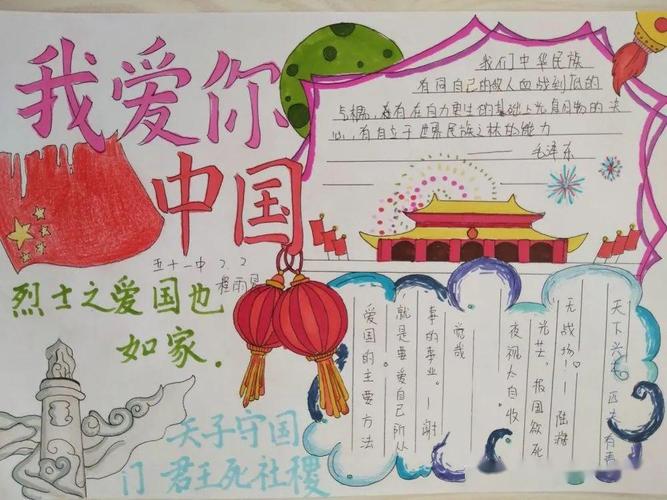 我爱你
中国
五十一中 2.2
程雨
烈士之爱国也
如家.
天子守国
门 君王死社稷
我们中华民族
有同自己的敌人血战到底的
气概，有在自力更生的基础上光复旧物的决
心，有自立于世界民族之林的能力
毛泽东
爱国的主要方法
就是要爱自己所从
事的事业。—谢
觉哉
夜视太白收
光芒，报国欲死
无战场！——陆
天下兴